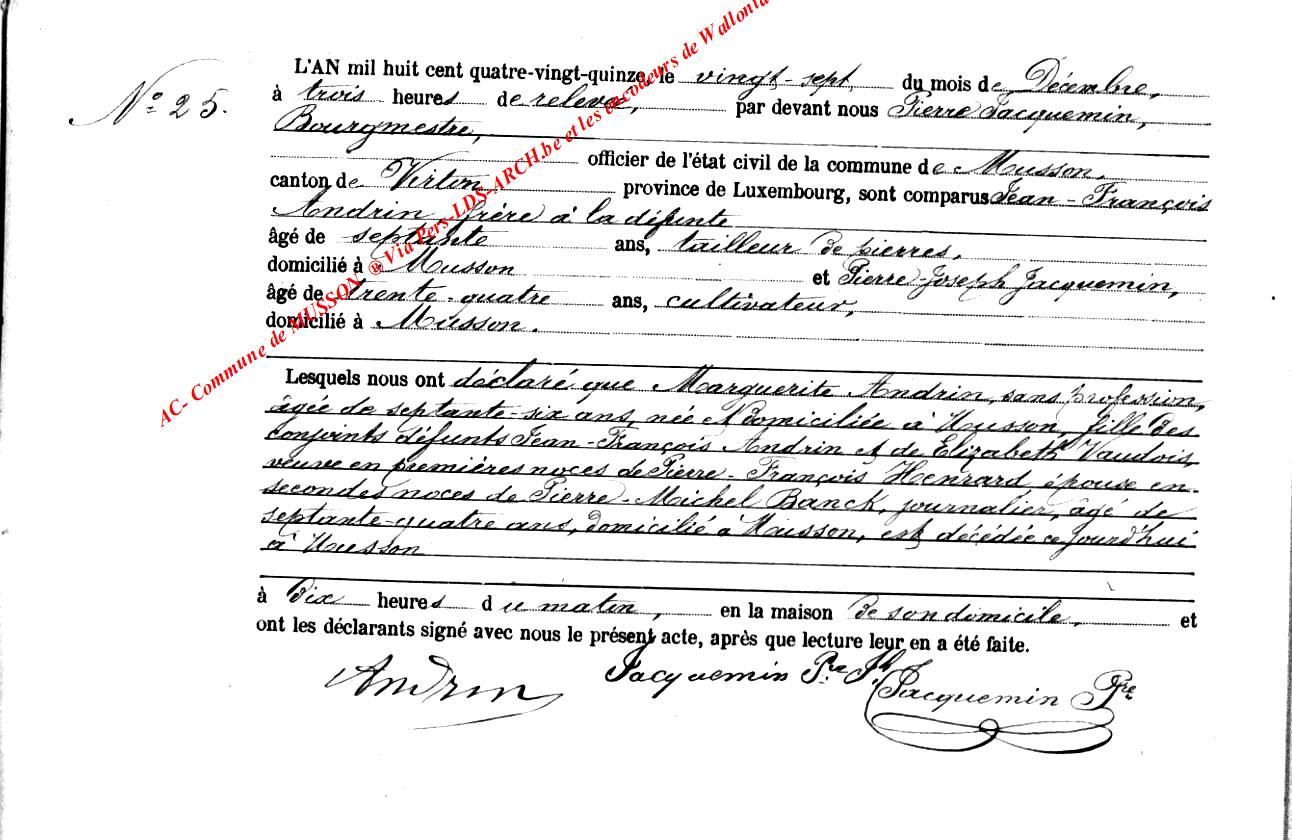 N° 25.
L'AN mil huit cent quatre-vingt-quinze, le vingt-sept du mois de Décembre,
à trois heures de relevée, par devant nous Pierre Jacquemin,
Bourgmestre,
officier de l'état civil de la commune de Musson,
canton de Virton province de Luxembourg, sont comparus Jean-François
Andrin, frère à la défunte
âgé de septante ans, tailleur de pierres,
domicilié à Musson et Pierre Joseph Jacquemin,
âgé de trente-quatre ans, cultivateur,
domicilié à Musson.
Lesquels nous ont déclaré que Marguerite Andrin, sans profession,
âgée de septante-six ans, née et domiciliée à Musson, fille des
conjoints défunts Jean-François Andrin et de Elizabeth Vaudois,
veuve en premières noces de Pierre-François Henrard épouse en
secondes noces de Pierre-Michel Banck, journalier, âgé de
septante-quatre ans, domicilié à Musson, est décédée ce jourd'hui
à Musson
à dix heures du matin, en la maison de son domicile, et
ont les déclarants signé avec nous le présent acte, après que lecture leur en a été faite.
Andrin Jacquemin Pre Jh Jacquemin Pre
AC- Commune de MUSSON ® Via Pers-LDS-ARCH.be et les encodeurs de Wallonie